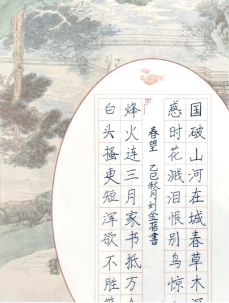 国破山河在城春草木深
感时花溅泪恨别鸟惊
春望 乙巳秋月 書
烽火连三月家书抵万金
白头搔更短浑欲不胜簪